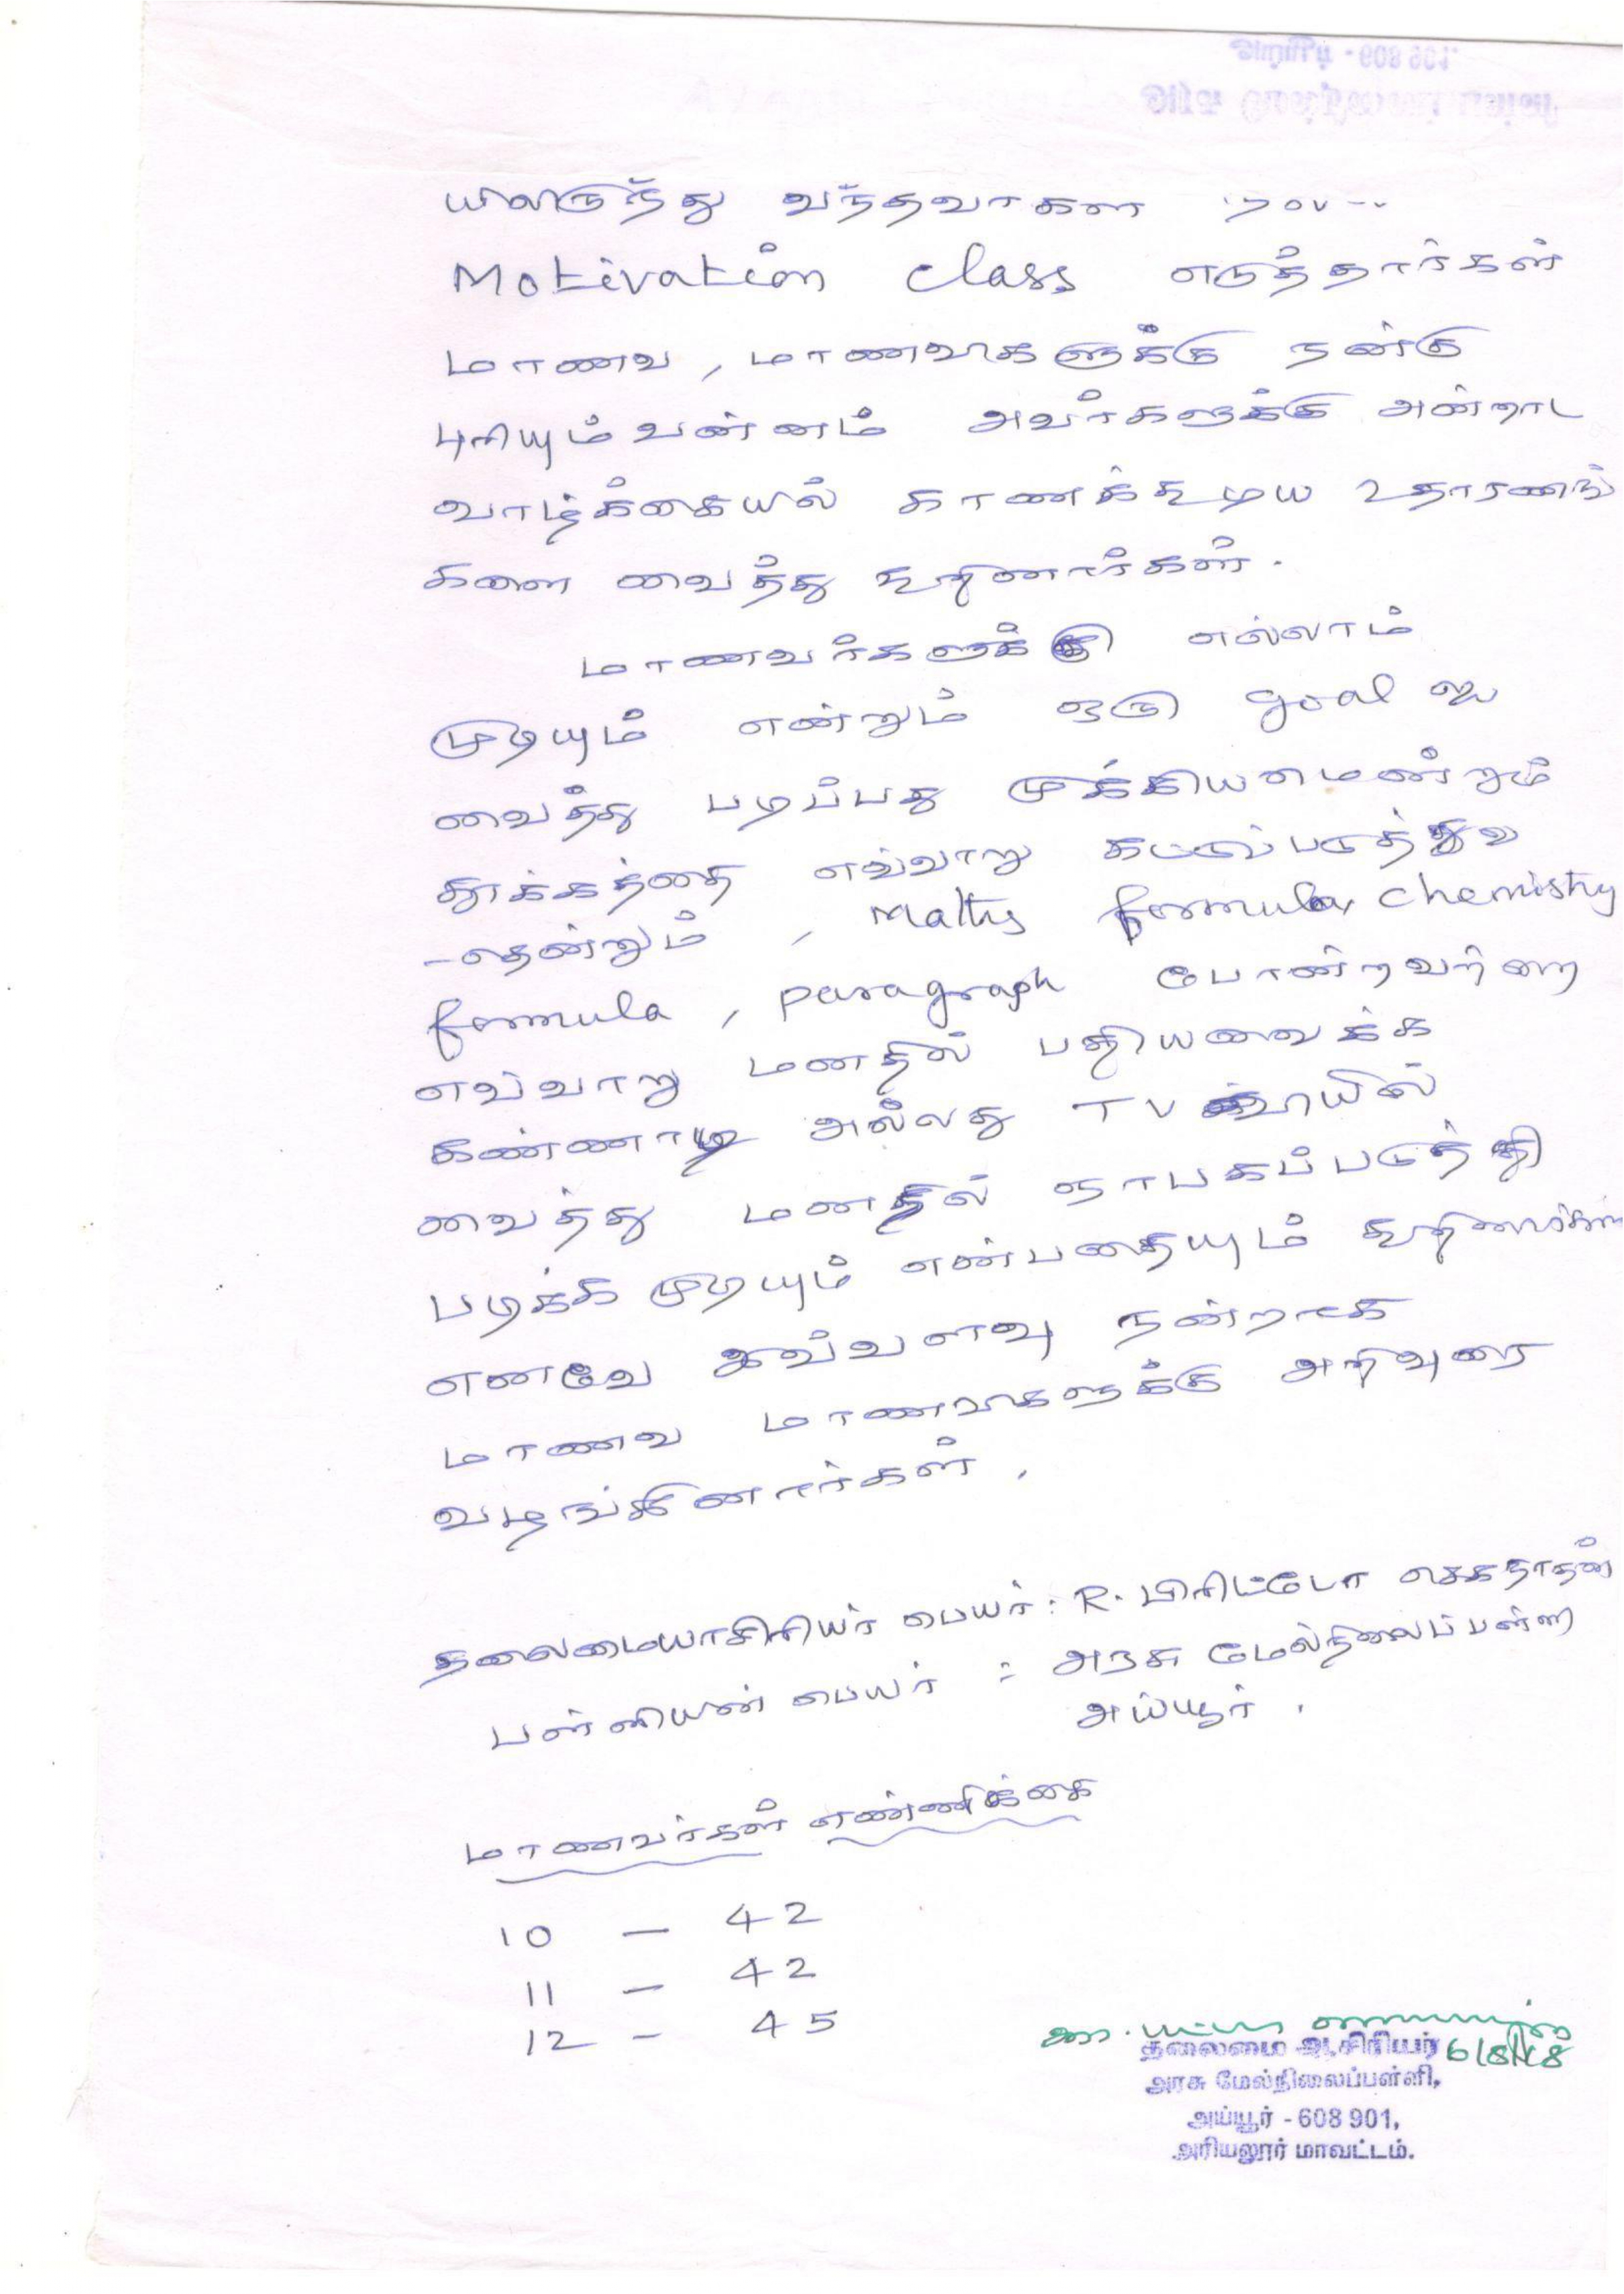 யிலிருந்து வந்தவர்கள்
Motivation class எடுத்தார்கள்
மாணவ, மாணவிகளுக்கு நன்கு
புரியும்வண்ணம் அவர்களுக்கு அன்றாட
வாழ்க்கையில் காணக்கூடிய உதாரணங்
களை வைத்து கூறினார்கள்.
மாணவர்களுக்கு எல்லாம்
முடியும் என்றும் ஒரு goal ஐ
வைத்து படிப்பது முக்கியமென்றும்
தூக்கத்தை எவ்வாறு கட்டுப்படுத்துவ
-தென்றும், Maths formula, chemistry
formula, paragraph போன்றவற்றை
எவ்வாறு மனதில் பதியவைக்க
கண்ணாடி அல்லது TV
வைத்து மனதில் நாபகப்படுத்தி
படிக்க முடியும் என்பதையும் கூறினார்கள்
எனவே இவ்வளவு நன்றாக
மாணவ மாணவிகளுக்கு அறிவுரை
வழங்கினார்கள்.
தலைமையாசிரியர் பெயர்: R. பிரிட்டோ செகநாதன்
பள்ளியின் பெயர் : அரசு மேல்நிலைப்பள்ளி
அய்யூர்.
மாணவர்கள் எண்ணிக்கை
10 — 42
11 — 42
12 – 45
6/8/18
தலைமை ஆசிரியர்
அரசு மேல்நிலைப்பள்ளி,
அய்யூர் - 608 901,
அரியலூர் மாவட்டம்.